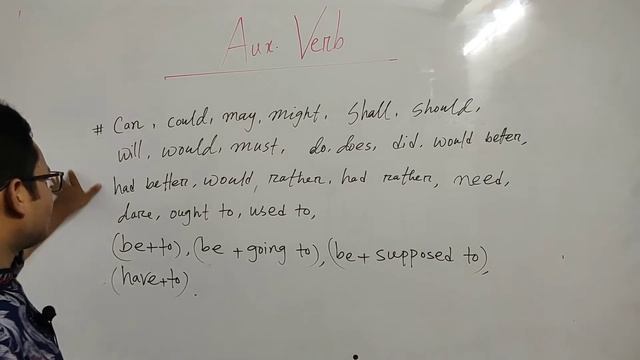 Aux. Verb
# Can, could, may, might, Shall, should,
will, would, must, do, does, did, would better,
had better, would, rather, had rather, need,
dare, ought to, used to,
(be+to), (be + going to), (be + supposed to),
(have+to).